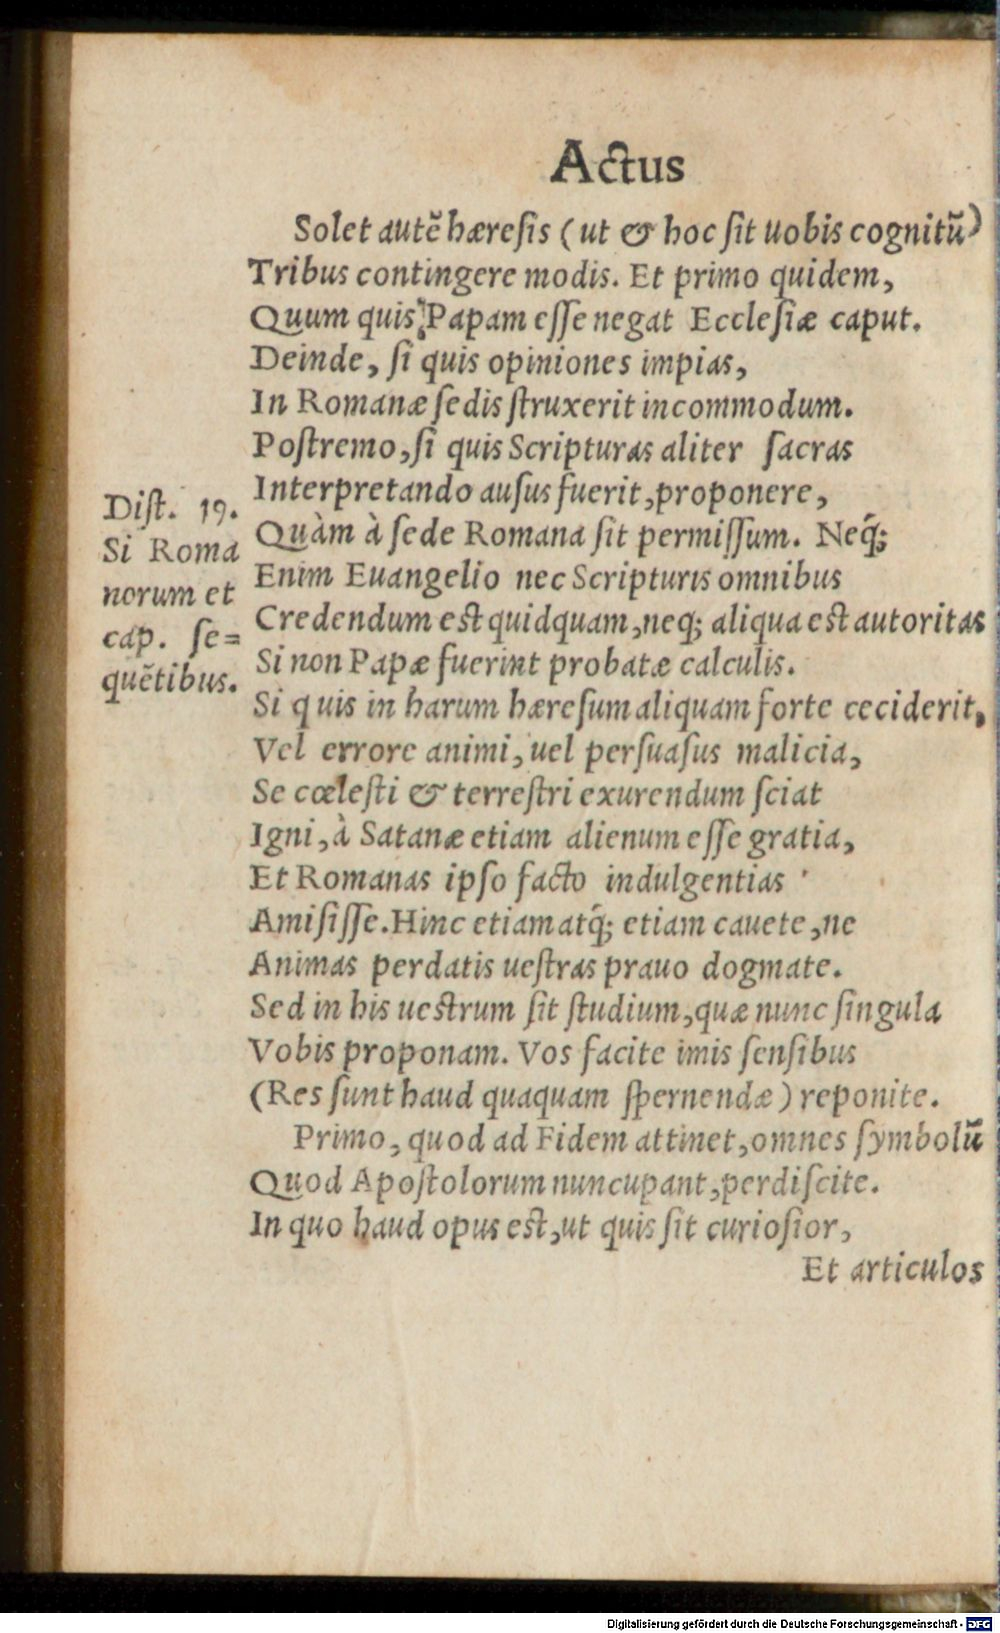 Actus
Solet autē hæresis (ut & hoc sit uobis cognitū)
Tribus contingere modis. Et primo quidem,
Quum quis, Papam esse negat Ecclesiæ caput.
Deinde, si quis opiniones impias,
In Romanæ sedis struxerit incommodum.
Postremo, si quis Scripturas aliter sacras
Interpretando ausus fuerit, proponere,
Quàm à sede Romana sit permissum. Neq́;
Enim Euangelio nec Scripturis omnibus
Credendum est quidquam, neq; aliqua est autoritas
Si non Papæ fuerint probatæ calculis.
Si quis in harum hæresum aliquam forte ceciderit,
Vel errore animi, uel persuasus malicia,
Se cœlesti & terrestri exurendum sciat
Igni, à Satanæ etiam alienum esse gratia,
Et Romanas ipso facto indulgentias
Amisisse. Hinc etiam atq́; etiam cauete, ne
Animas perdatis uestras prauo dogmate.
Sed in his uestrum sit studium, quæ nunc singula
Vobis proponam. Vos facite imis sensibus
(Res sunt haud quaquam spernendæ) reponite.
Primo, quod ad Fidem attinet, omnes symbolū
Quod Apostolorum nuncupant, perdiscite.
In quo haud opus est, ut quis sit curiosior,
Et articulos
Dist. 19.
Si Roma
norum et
cap. se=
quētibus.
Digitalisierung gefördert durch die Deutsche Forschungsgemeinschaft - DFG